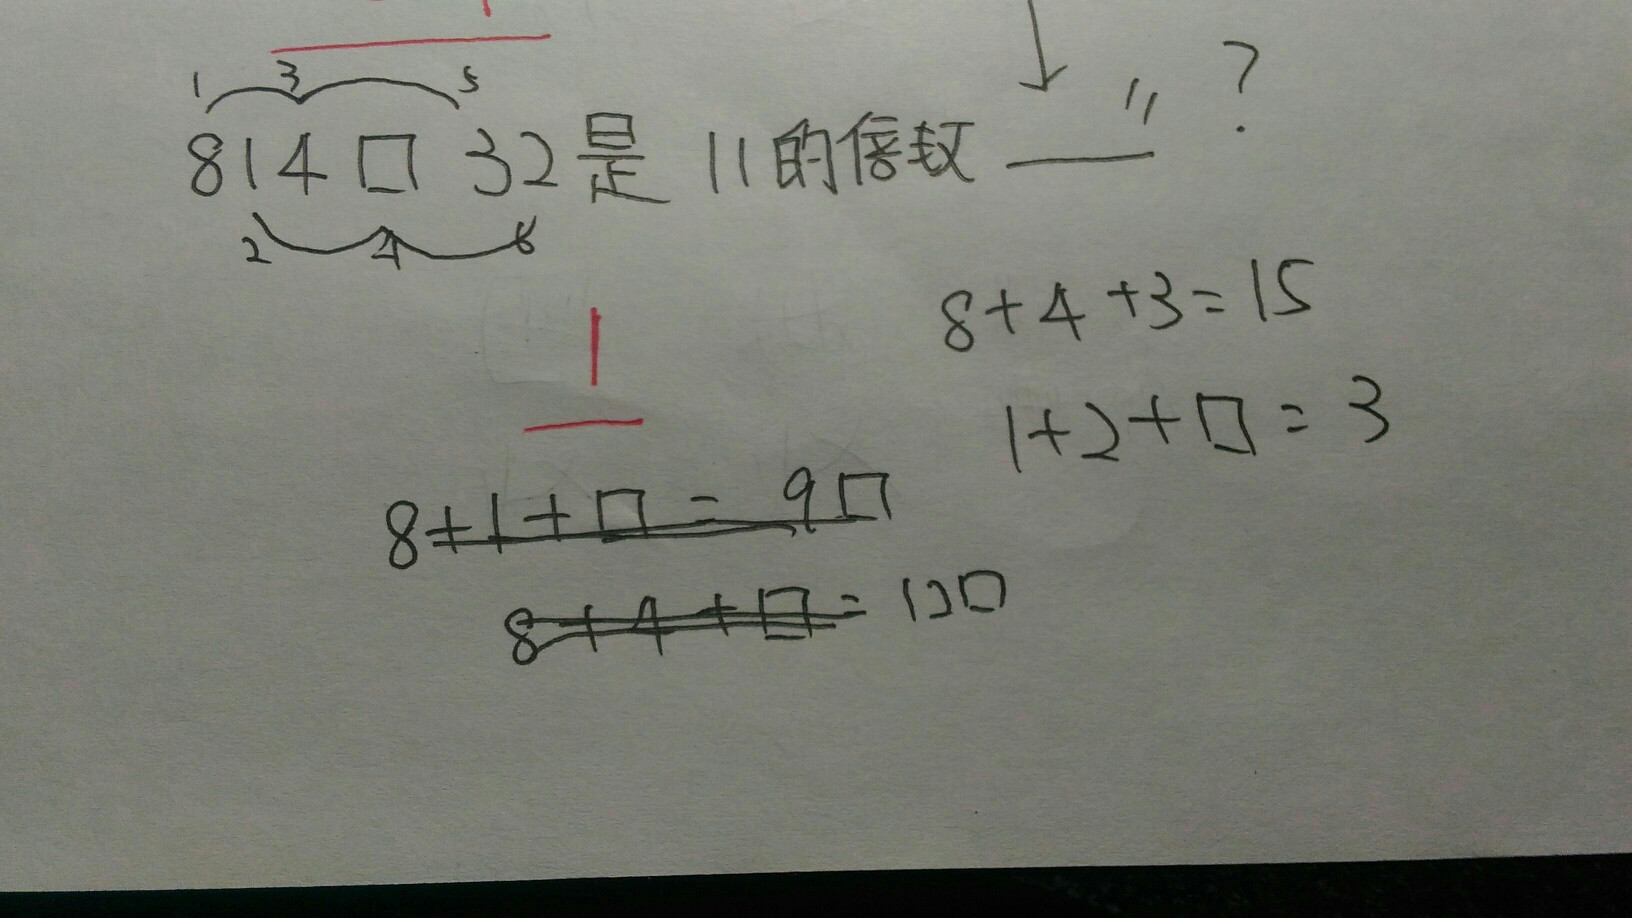 1 3 5
?
814□32是 11的倍数 ___ "
2 4 6
8+4+3=15
1
1+2+□=3
8+1+□=9□
8+4+□=120